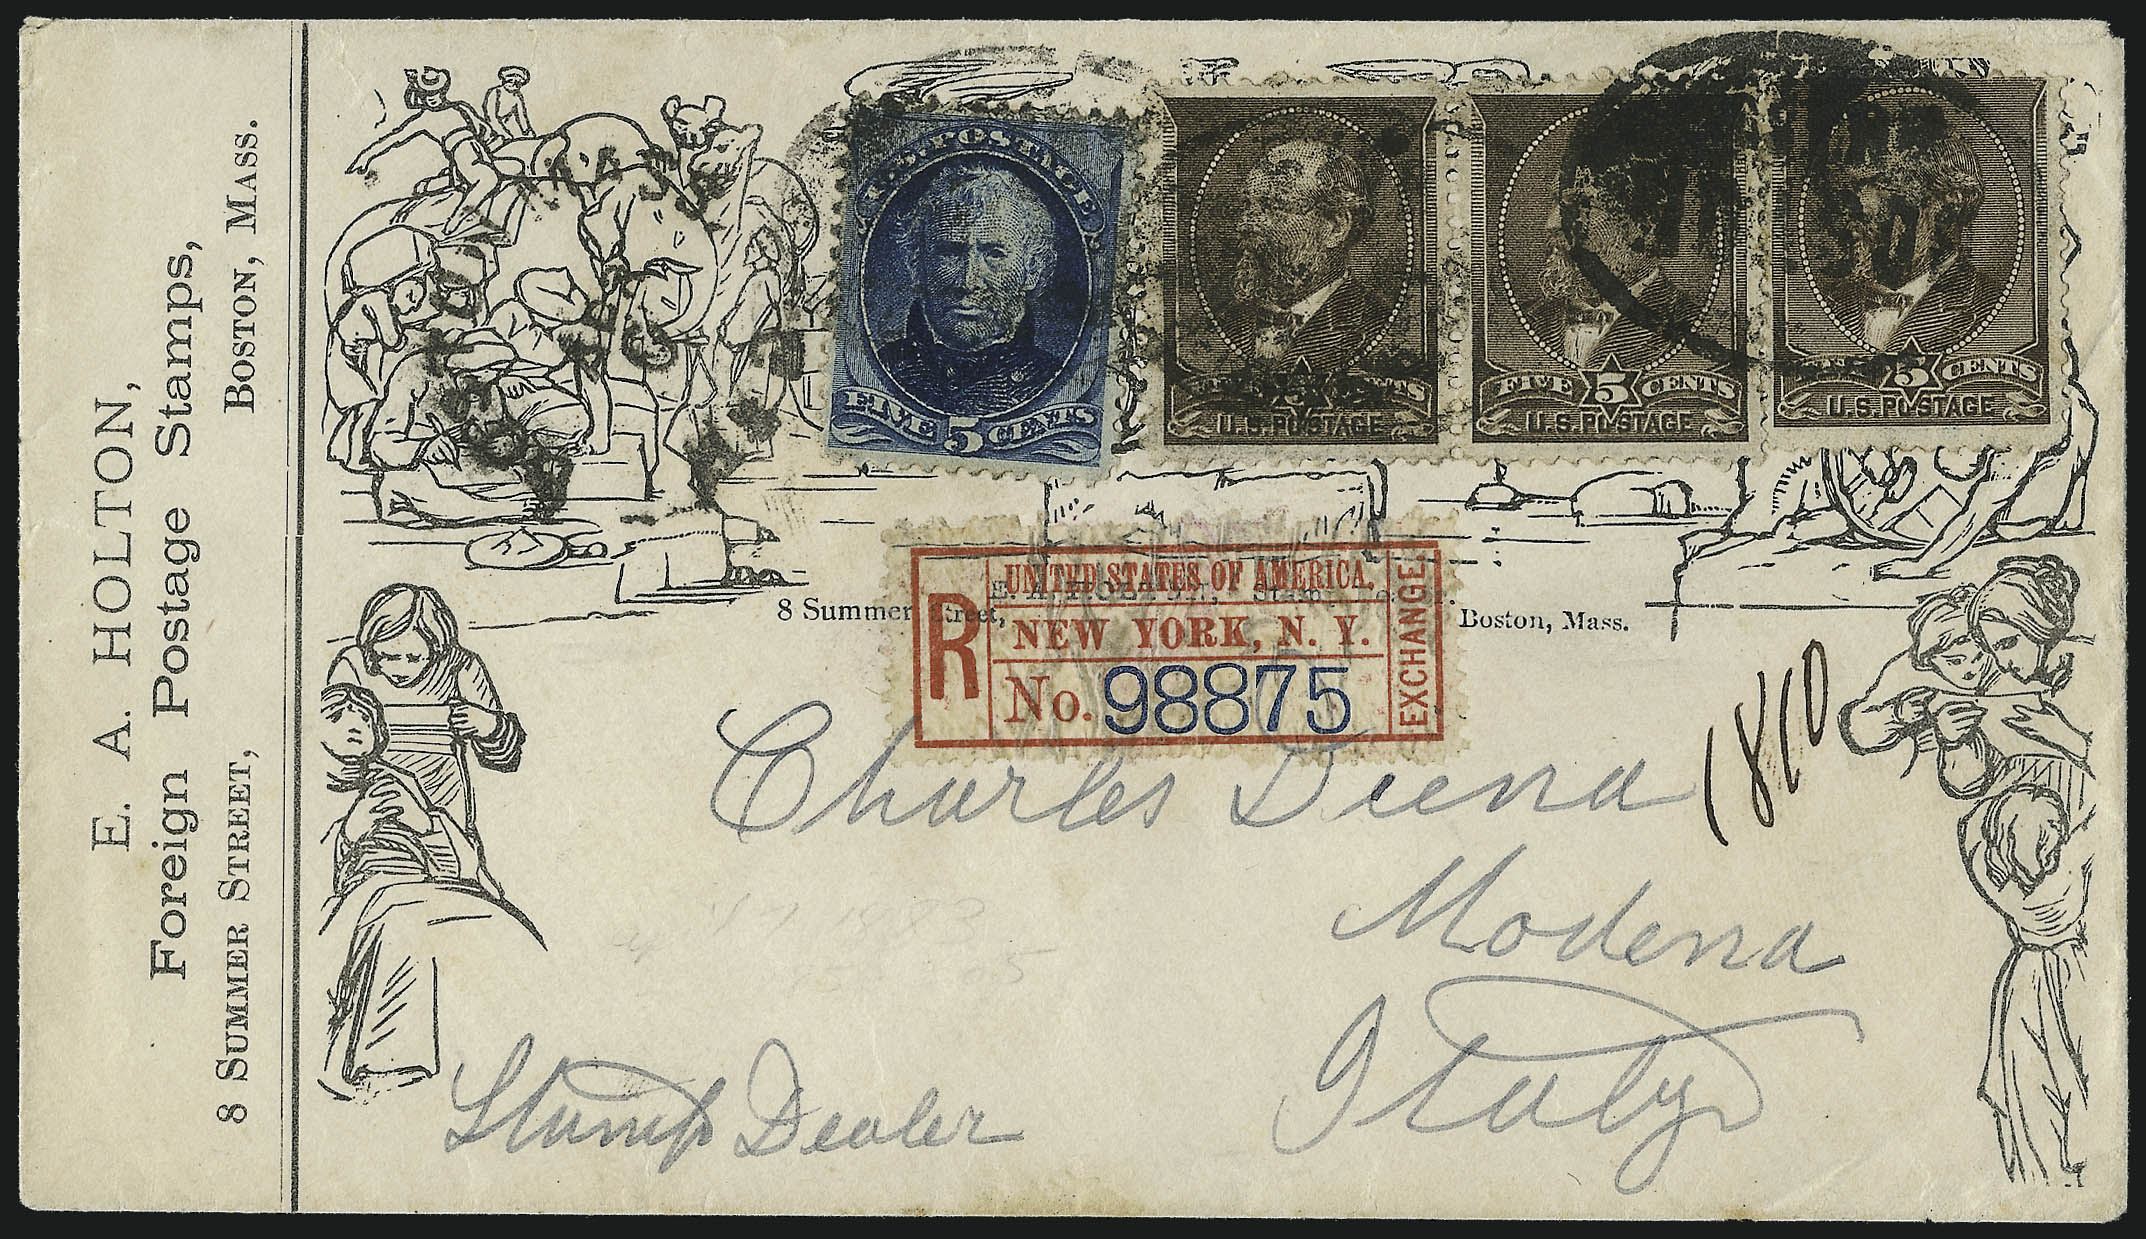 E. A. HOLTON,
Foreign Postage Stamps,
8 SUMMER STREET, BOSTON, MASS.
U.S. POSTAGE
FIVE 5 CENTS
FIVE 5 CENTS
U.S. POSTAGE
FIVE 5 CENTS
U.S. POSTAGE
5 CENTS
U.S. POSTAGE
E. A. HOLTON, Stamp
8 Summer Street, Boston, Mass.
R
UNITED STATES OF AMERICA.
NEW YORK, N. Y.
No. 98875
EXCHANGE.
1810
Charles Diena
Modena
Italy
Stamp Dealer